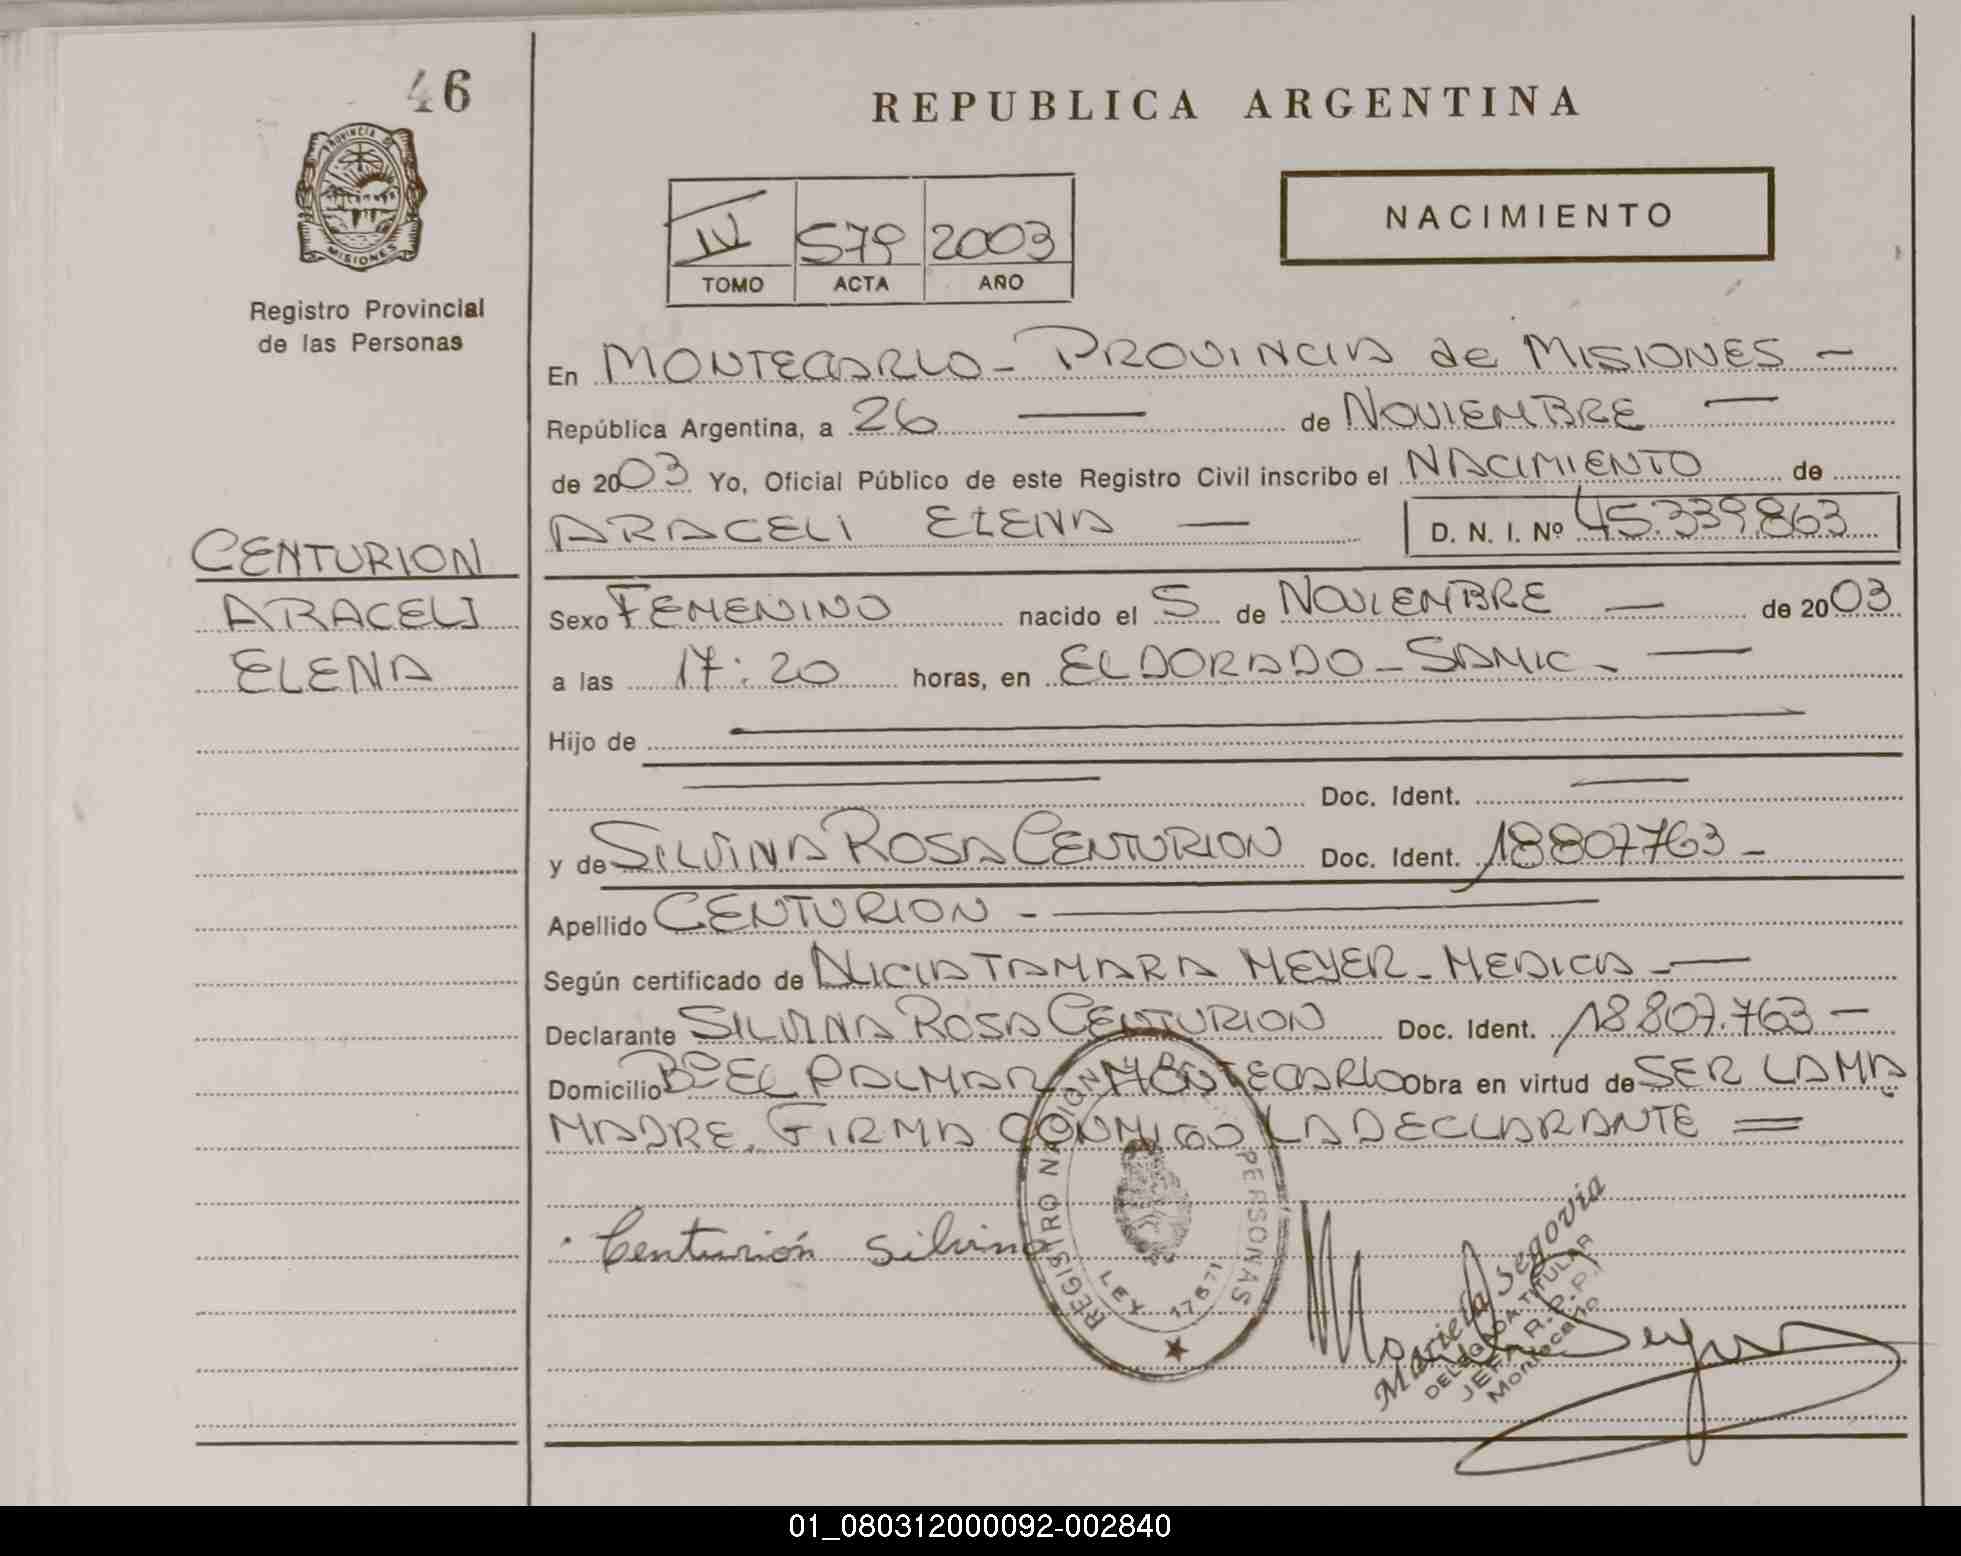 46
PROVINCIA DE
MISIONES
Registro Provincial
de las Personas
CENTURION
ARACELI
ELENA
REPUBLICA ARGENTINA
NACIMIENTO
IV 579 2003
TOMO ACTA AÑO
En MONTECARLO - PROVINCIA de MISIONES -
República Argentina, a 26 — de NOVIEMBRE —
de 2003 Yo, Oficial Público de este Registro Civil inscribo el NACIMIENTO de
ARACELI ELENA — D. N. I. Nº 45.339.863
Sexo FEMENINO nacido el 5 de NOVIEMBRE — de 2003
a las 17:20 horas, en ELDORADO - SAMIC - —
Hijo de —
— Doc. Ident. —
y de SILVINA ROSA CENTURION Doc. Ident. 18807763 -
Apellido CENTURION - —
Según certificado de ALICIA TAMARA MEYER - MEDICA - —
Declarante SILVINA ROSA CENTURION Doc. Ident. 18.807.763 -
Domicilio Bº EL PALMAR MONTECARLO Obra en virtud de SER LA MA
MADRE. FIRMA CONMIGO LA DECLARANTE =
Centurión Silvina
REGISTRO NACIONAL DE LAS PERSONAS
LEY 17671
Mariela Segovia
DELEGADA TITULAR
JEFA R.P.P.
Montecarlo
01_080312000092-002840